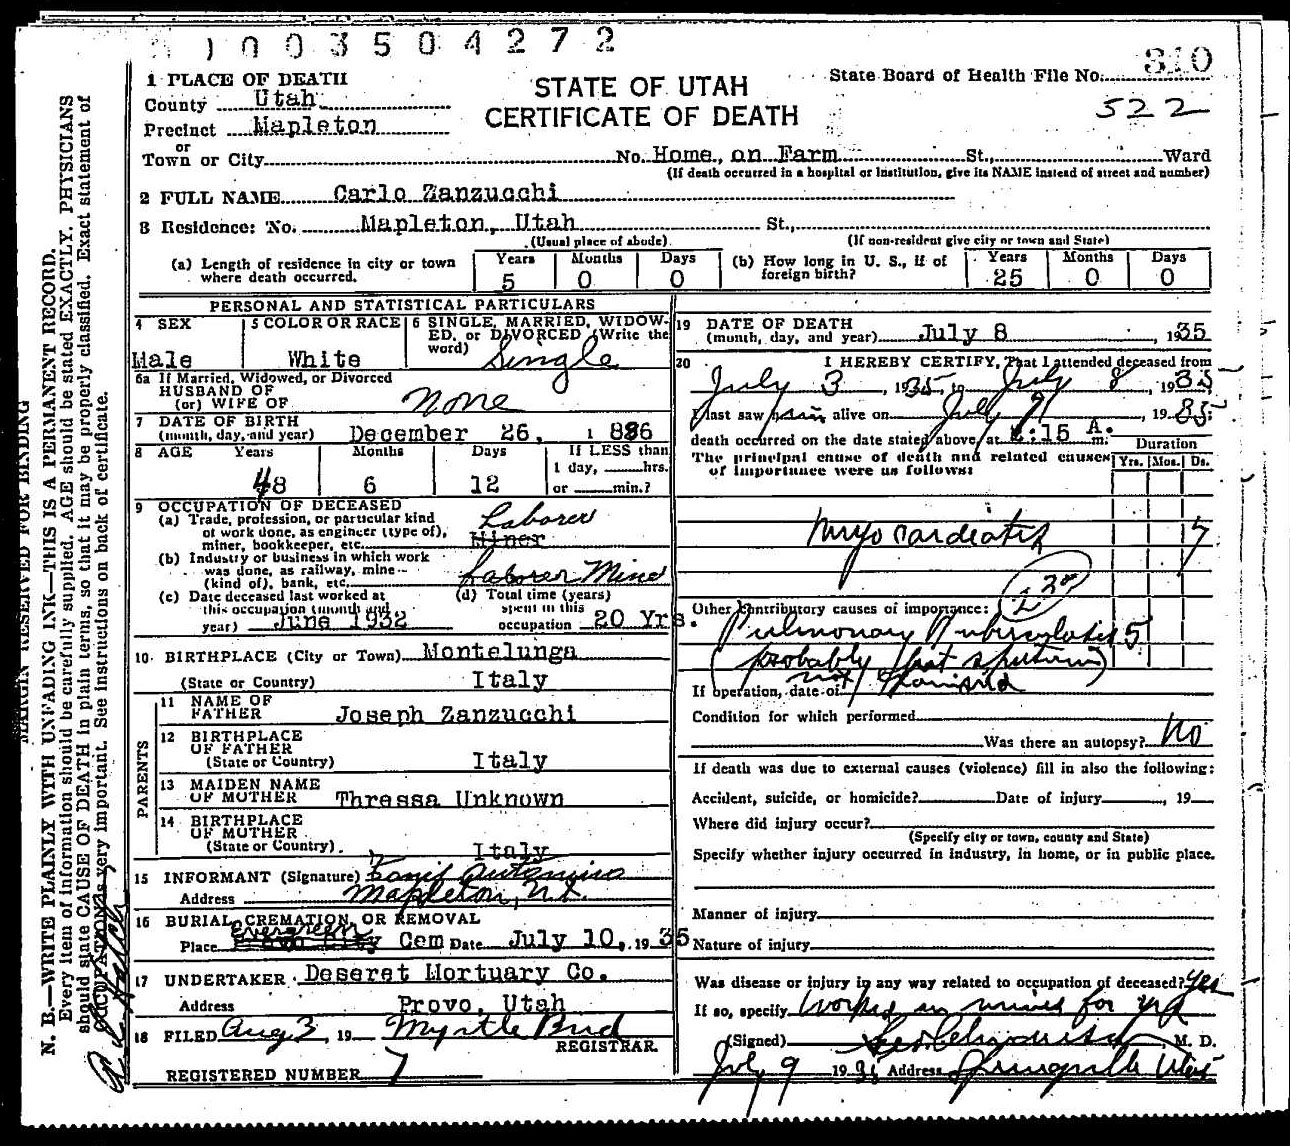 1003504272
310
522
State Board of Health File No.
STATE OF UTAH
CERTIFICATE OF DEATH
1 PLACE OF DEATH
County Utah
Precinct Mapleton
or
Town or City No. Home, on Farm St., Ward
(If death occurred in a hospital or institution, give its NAME instead of street and number)
2 FULL NAME Carlo Zanzucchi
3 Residence: No. Mapleton, Utah St.,
(Usual place of abode) (If non-resident give city or town and State)
(a) Length of residence in city or town where death occurred. Years 5 Months 0 Days 0
(b) How long in U. S., if of foreign birth? Years 25 Months 0 Days 0
PERSONAL AND STATISTICAL PARTICULARS
4 SEX Male
5 COLOR OR RACE White
6 SINGLE, MARRIED, WIDOWED, or DIVORCED (Write the word) Single
6a If Married, Widowed, or Divorced
HUSBAND OF
(or) WIFE OF None
7 DATE OF BIRTH
(month, day, and year) December 26, 1886
8 AGE Years 48 Months 6 Days 12
If LESS than
1 day, hrs.
or min.?
9 OCCUPATION OF DECEASED
(a) Trade, profession, or particular kind
of work done, as engineer (type of),
miner, bookkeeper, etc. Laborer Miner
(b) Industry or business in which work
was done, as railway, mine
(kind of), bank, etc. Laborer Mine
(c) Date deceased last worked at
this occupation (month and
year) June 1932
(d) Total time (years)
spent in this
occupation 20 Yrs.
10 BIRTHPLACE (City or Town) Montelunga
(State or Country) Italy
PARENTS
11 NAME OF
FATHER Joseph Zanzucchi
12 BIRTHPLACE
OF FATHER
(State or Country) Italy
13 MAIDEN NAME
OF MOTHER Thressa Unknown
14 BIRTHPLACE
OF MOTHER
(State or Country) Italy
15 INFORMANT (Signature)
Address Mapleton, Ut.
16 BURIAL, CREMATION, OR REMOVAL
Evergreen
Place Provo City Cem Date July 10, 1935
17 UNDERTAKER Deseret Mortuary Co.
Address Provo, Utah
18 FILED Aug 3, 19 Myrtle Bird
REGISTRAR
REGISTERED NUMBER 7
19 DATE OF DEATH
(month, day, and year) July 8, 1935
20 I HEREBY CERTIFY, That I attended deceased from
July 3, 1935, to July 8, 1935
I last saw him alive on July 7, 1935;
death occurred on the date stated above, at :15 A. m.
The principal cause of death and related causes
of importance were as follows:
Duration
Yrs. Mos. Ds.
Myocardiatis 7
Other contributory causes of importance:
Pulmonary Tuberculosis 5
(probably (but sputum)
not
If operation, date of
Condition for which performed
Was there an autopsy? No
If death was due to external causes (violence) fill in also the following:
Accident, suicide, or homicide? Date of injury , 19
Where did injury occur?
(Specify city or town, county and State)
Specify whether injury occurred in industry, in home, or in public place.
Manner of injury
Nature of injury
Was disease or injury in any way related to occupation of deceased? Yes
If so, specify Worked in mines for yrs
(Signed) M. D.
July 9 1935 Address Springville Utah
MARGIN RESERVED FOR BINDING
N. B.—WRITE PLAINLY WITH UNFADING INK—THIS IS A PERMANENT RECORD.
Every item of information should be carefully supplied. AGE should be stated EXACTLY. PHYSICIANS
should state CAUSE OF DEATH in plain terms, so that it may be properly classified. Exact statement of
OCCUPATION is very important. See instructions on back of certificate.